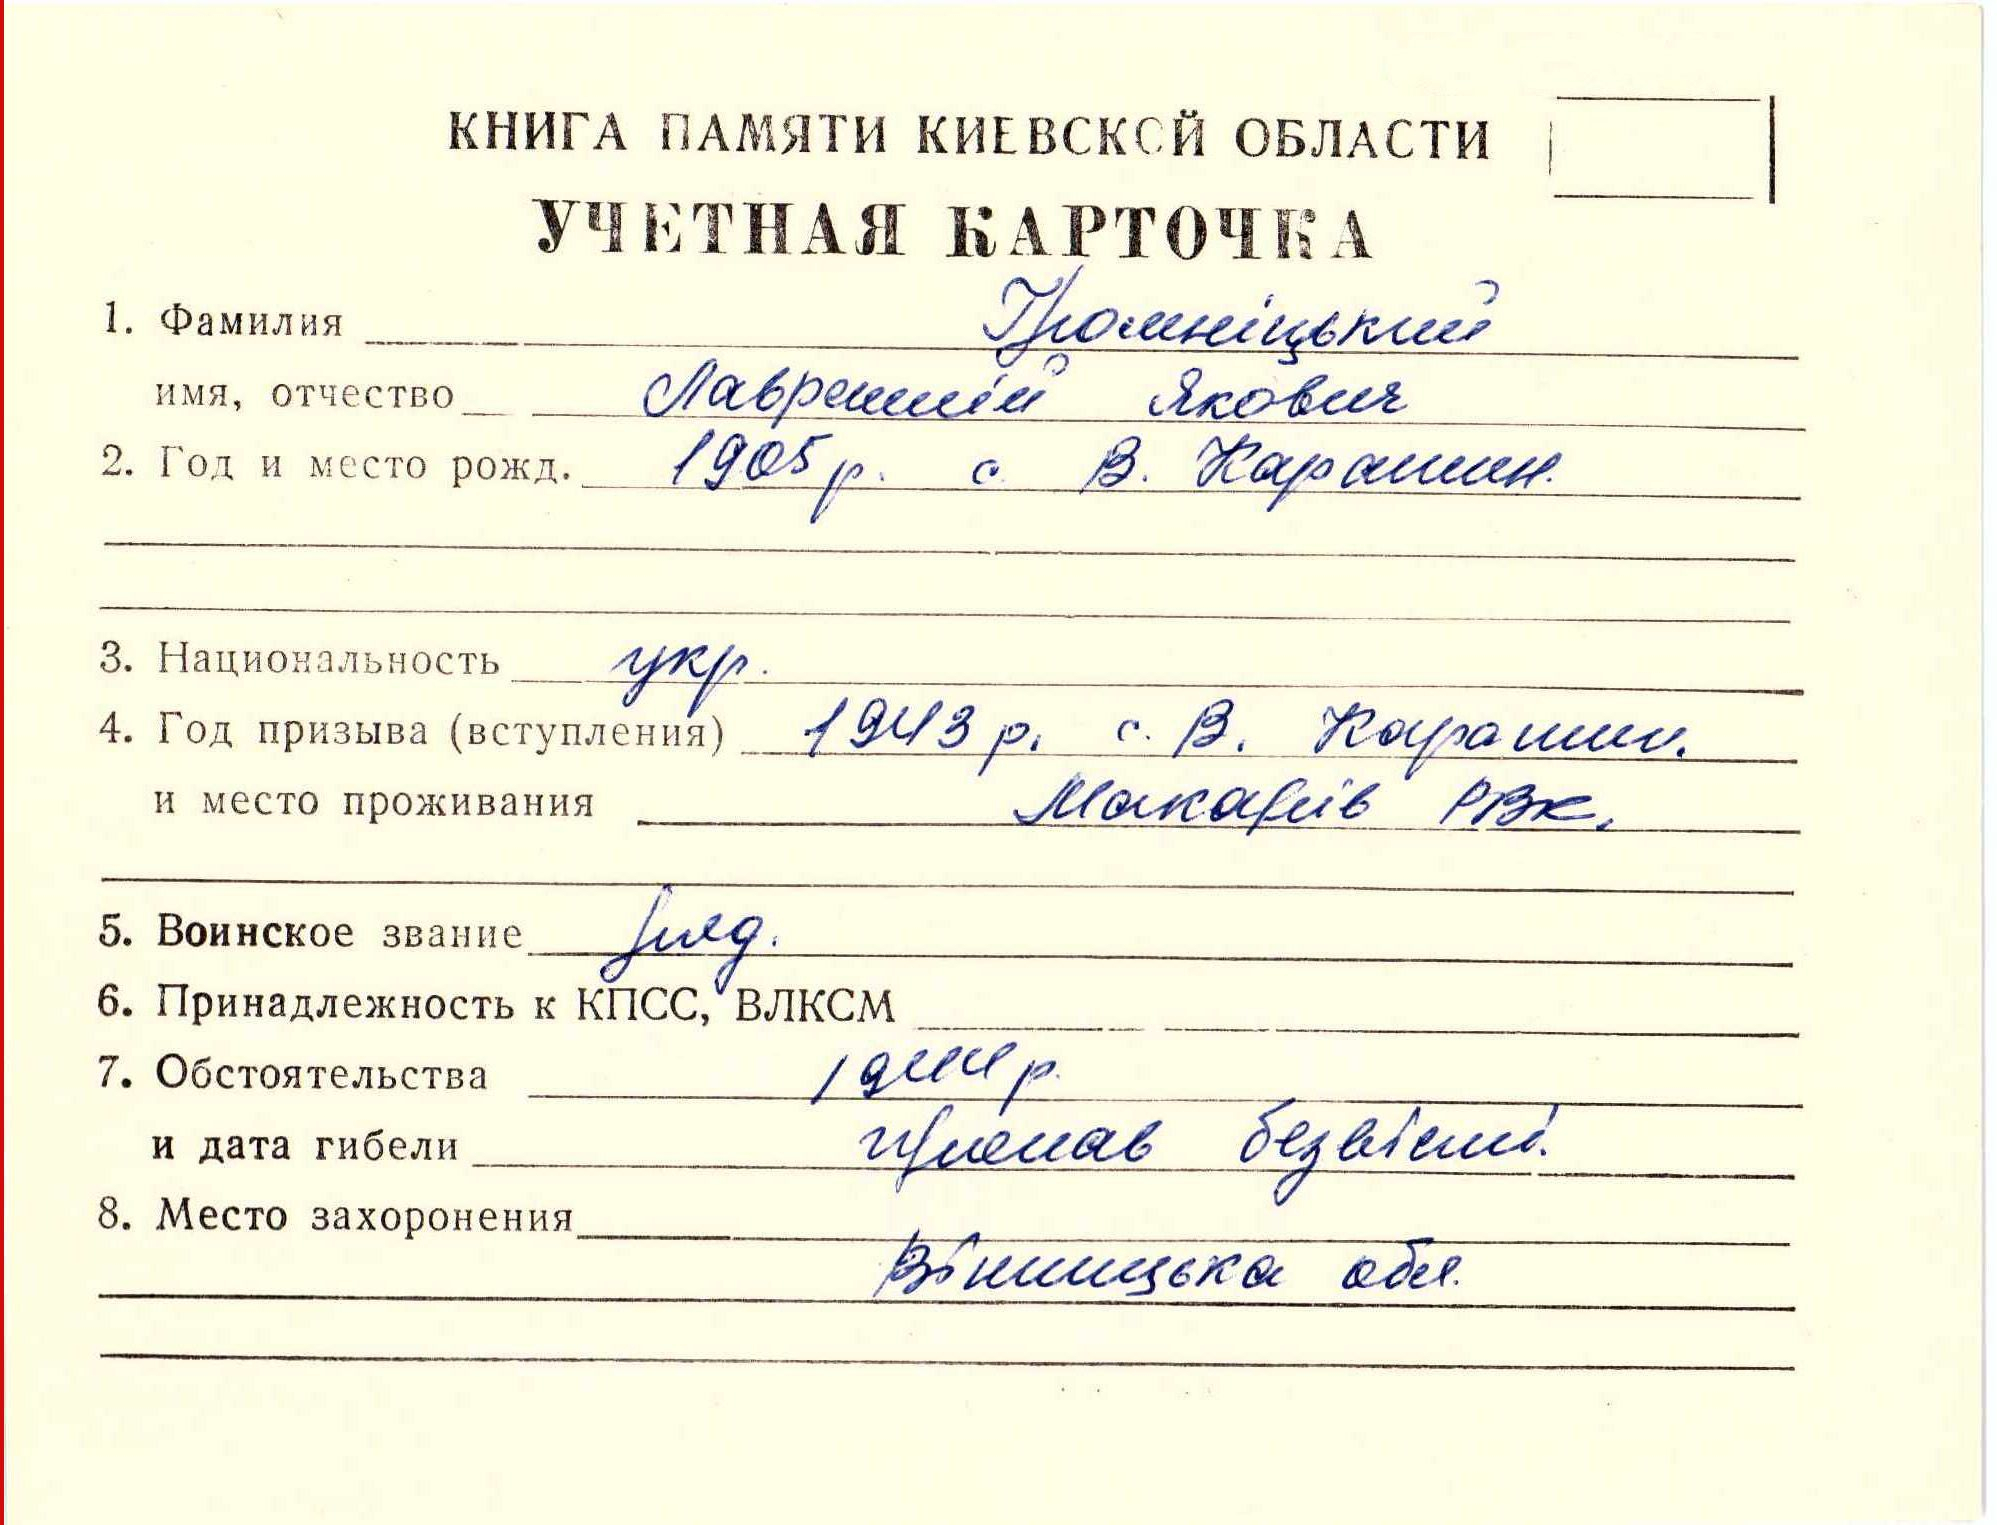 КНИГА ПАМЯТИ КИЕВСКОЙ ОБЛАСТИ
УЧЕТНАЯ КАРТОЧКА
1. Фамилия Громніцький
имя, отчество Лаврентій Якович
2. Год и место рожд. 1905 р. с. В. Карашин.
3. Национальность укр.
4. Год призыва (вступления) 1943 р. с. В. Карашин.
и место проживания Макарів РВК.
5. Воинское звание ряд.
6. Принадлежность к КПСС, ВЛКСМ
7. Обстоятельства 1944 р.
и дата гибели пропав безвісті.
8. Место захоронения
Вінницька обл.